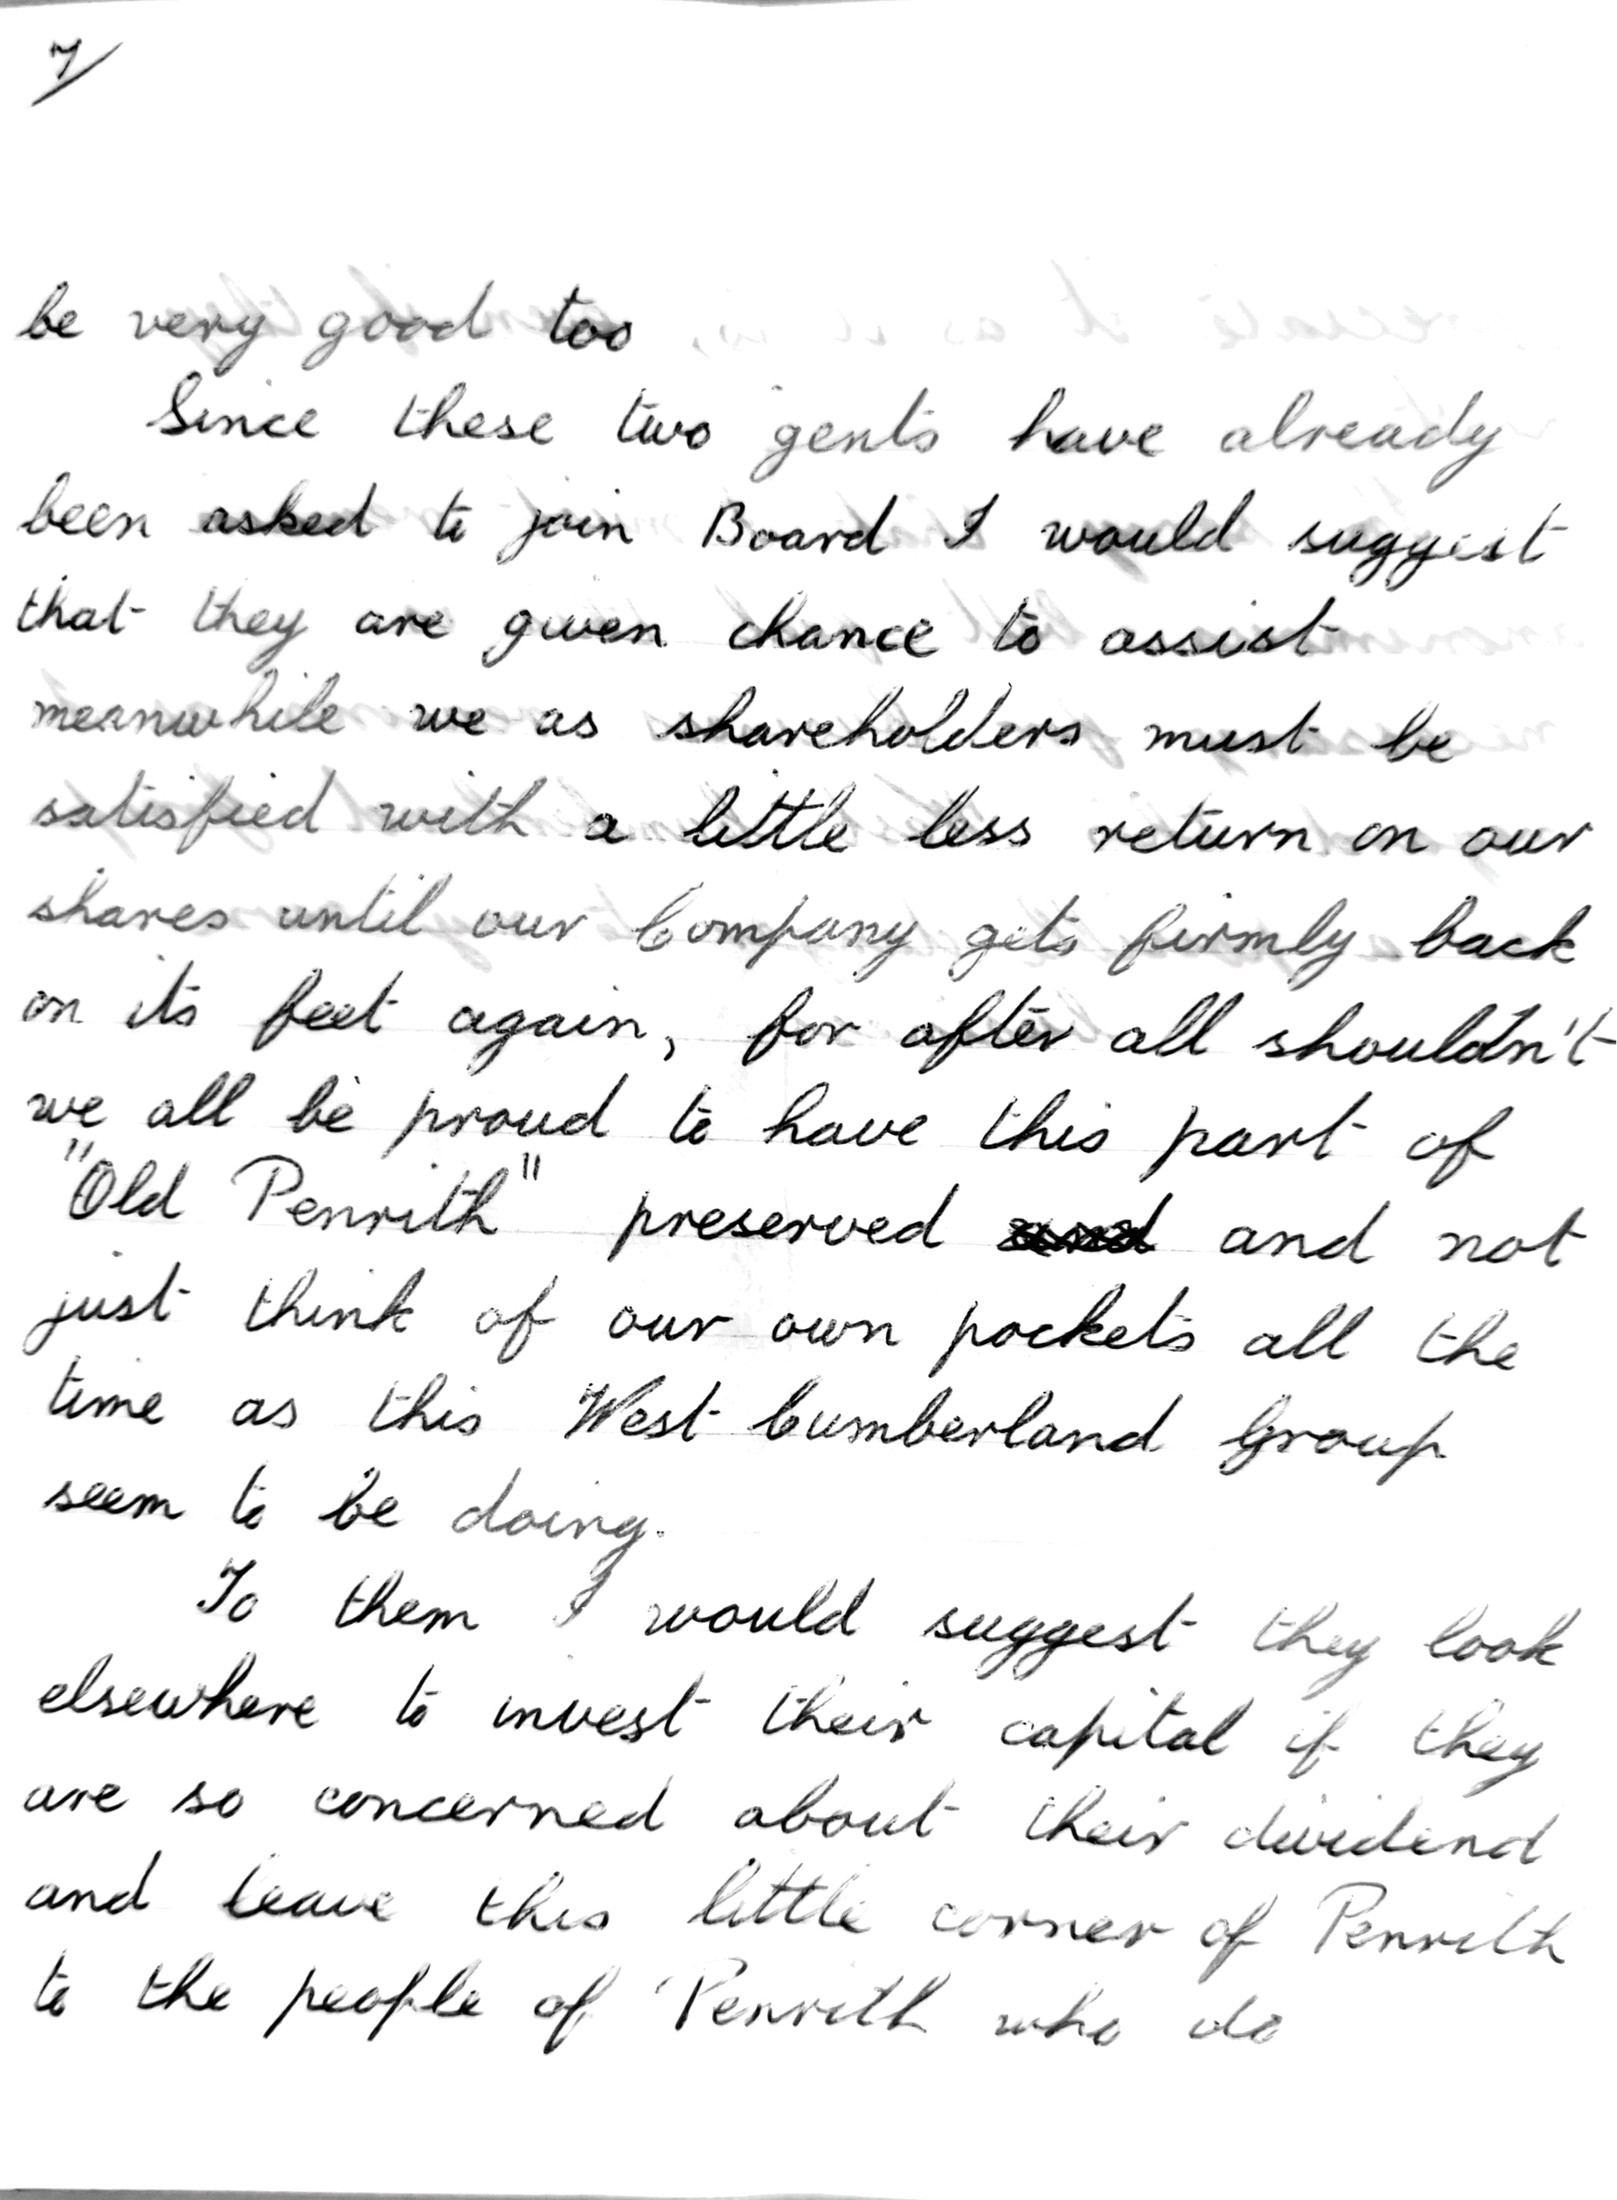 7/
be very good too
Since these two gents have already
been asked to join Board I would suggest
that they are given chance to assist
meanwhile we as shareholders must be
satisfied with a little less return on our
shares until our Company gets firmly back
on its feet again, for after all shouldn't
we all be proud to have this part of
"Old Penrith" preserved and and not
just think of our own pockets all the
time as this West Cumberland Group
seem to be doing.
To them I would suggest they look
elsewhere to invest their capital if they
are so concerned about their dividend
and leave this little corner of Penrith
to the people of Penrith who do